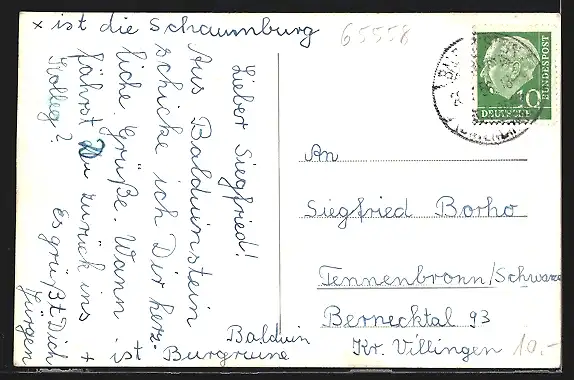 x ist die Schaumburg
Lieber Siegfried!
Aus Balduinstein
schicke ich Dir herz-
liche Grüße. Wann
fährst Du zurück ins
Kolleg?
Es grüßt Dich
Jürgen
+ ist Burgruine
Balduin
65558
DEUTSCHE BUNDESPOST
10
An
Siegfried Borho
Tennenbronn/Schwarzw
Bernecktal 93
Kr. Villingen
10,-